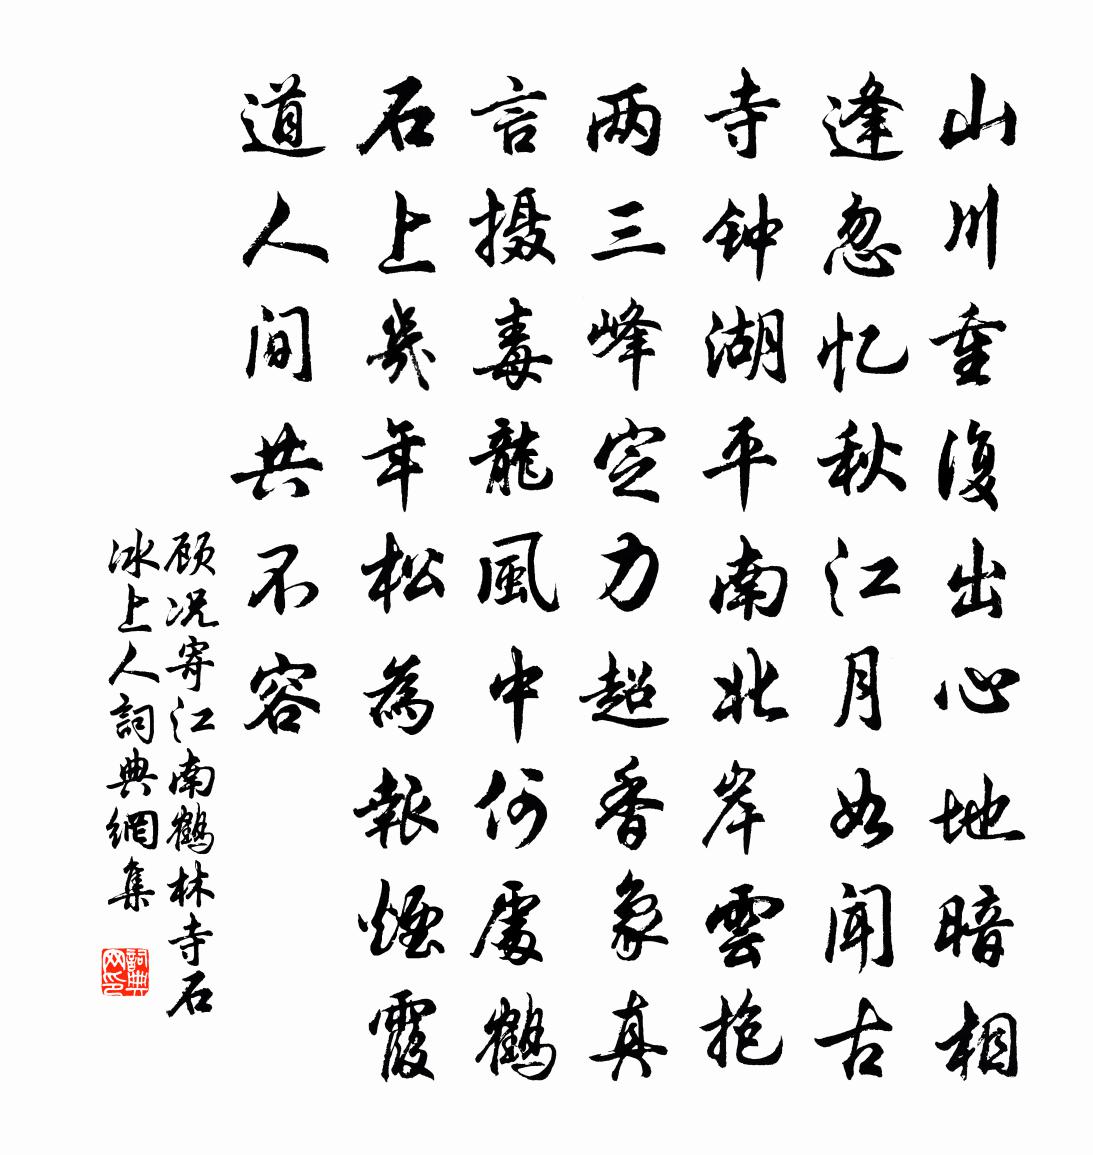 山川重復出心地暗相
逢忽忆秋江月如闻古
寺钟湖平南北岸雲抱
两三峰定力超香象真
言摄毒龍風中何處鶴
石上幾年松為報煙霞
道人间共不容
顾况寄江南鶴林寺石
冰上人詞典網集
詞典网印